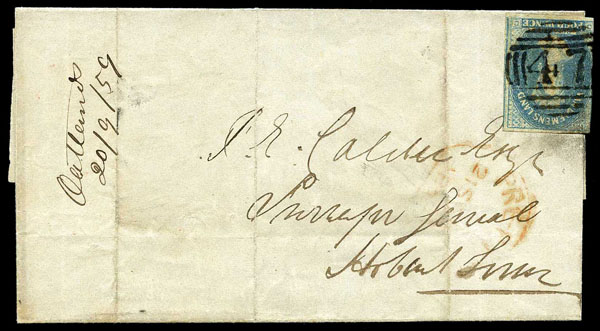 Oatlands
20/9/59
FOURPENCE
47
DIEMENS LAND
J. E. Calder Esqr
Surveyor General
Hobart Town